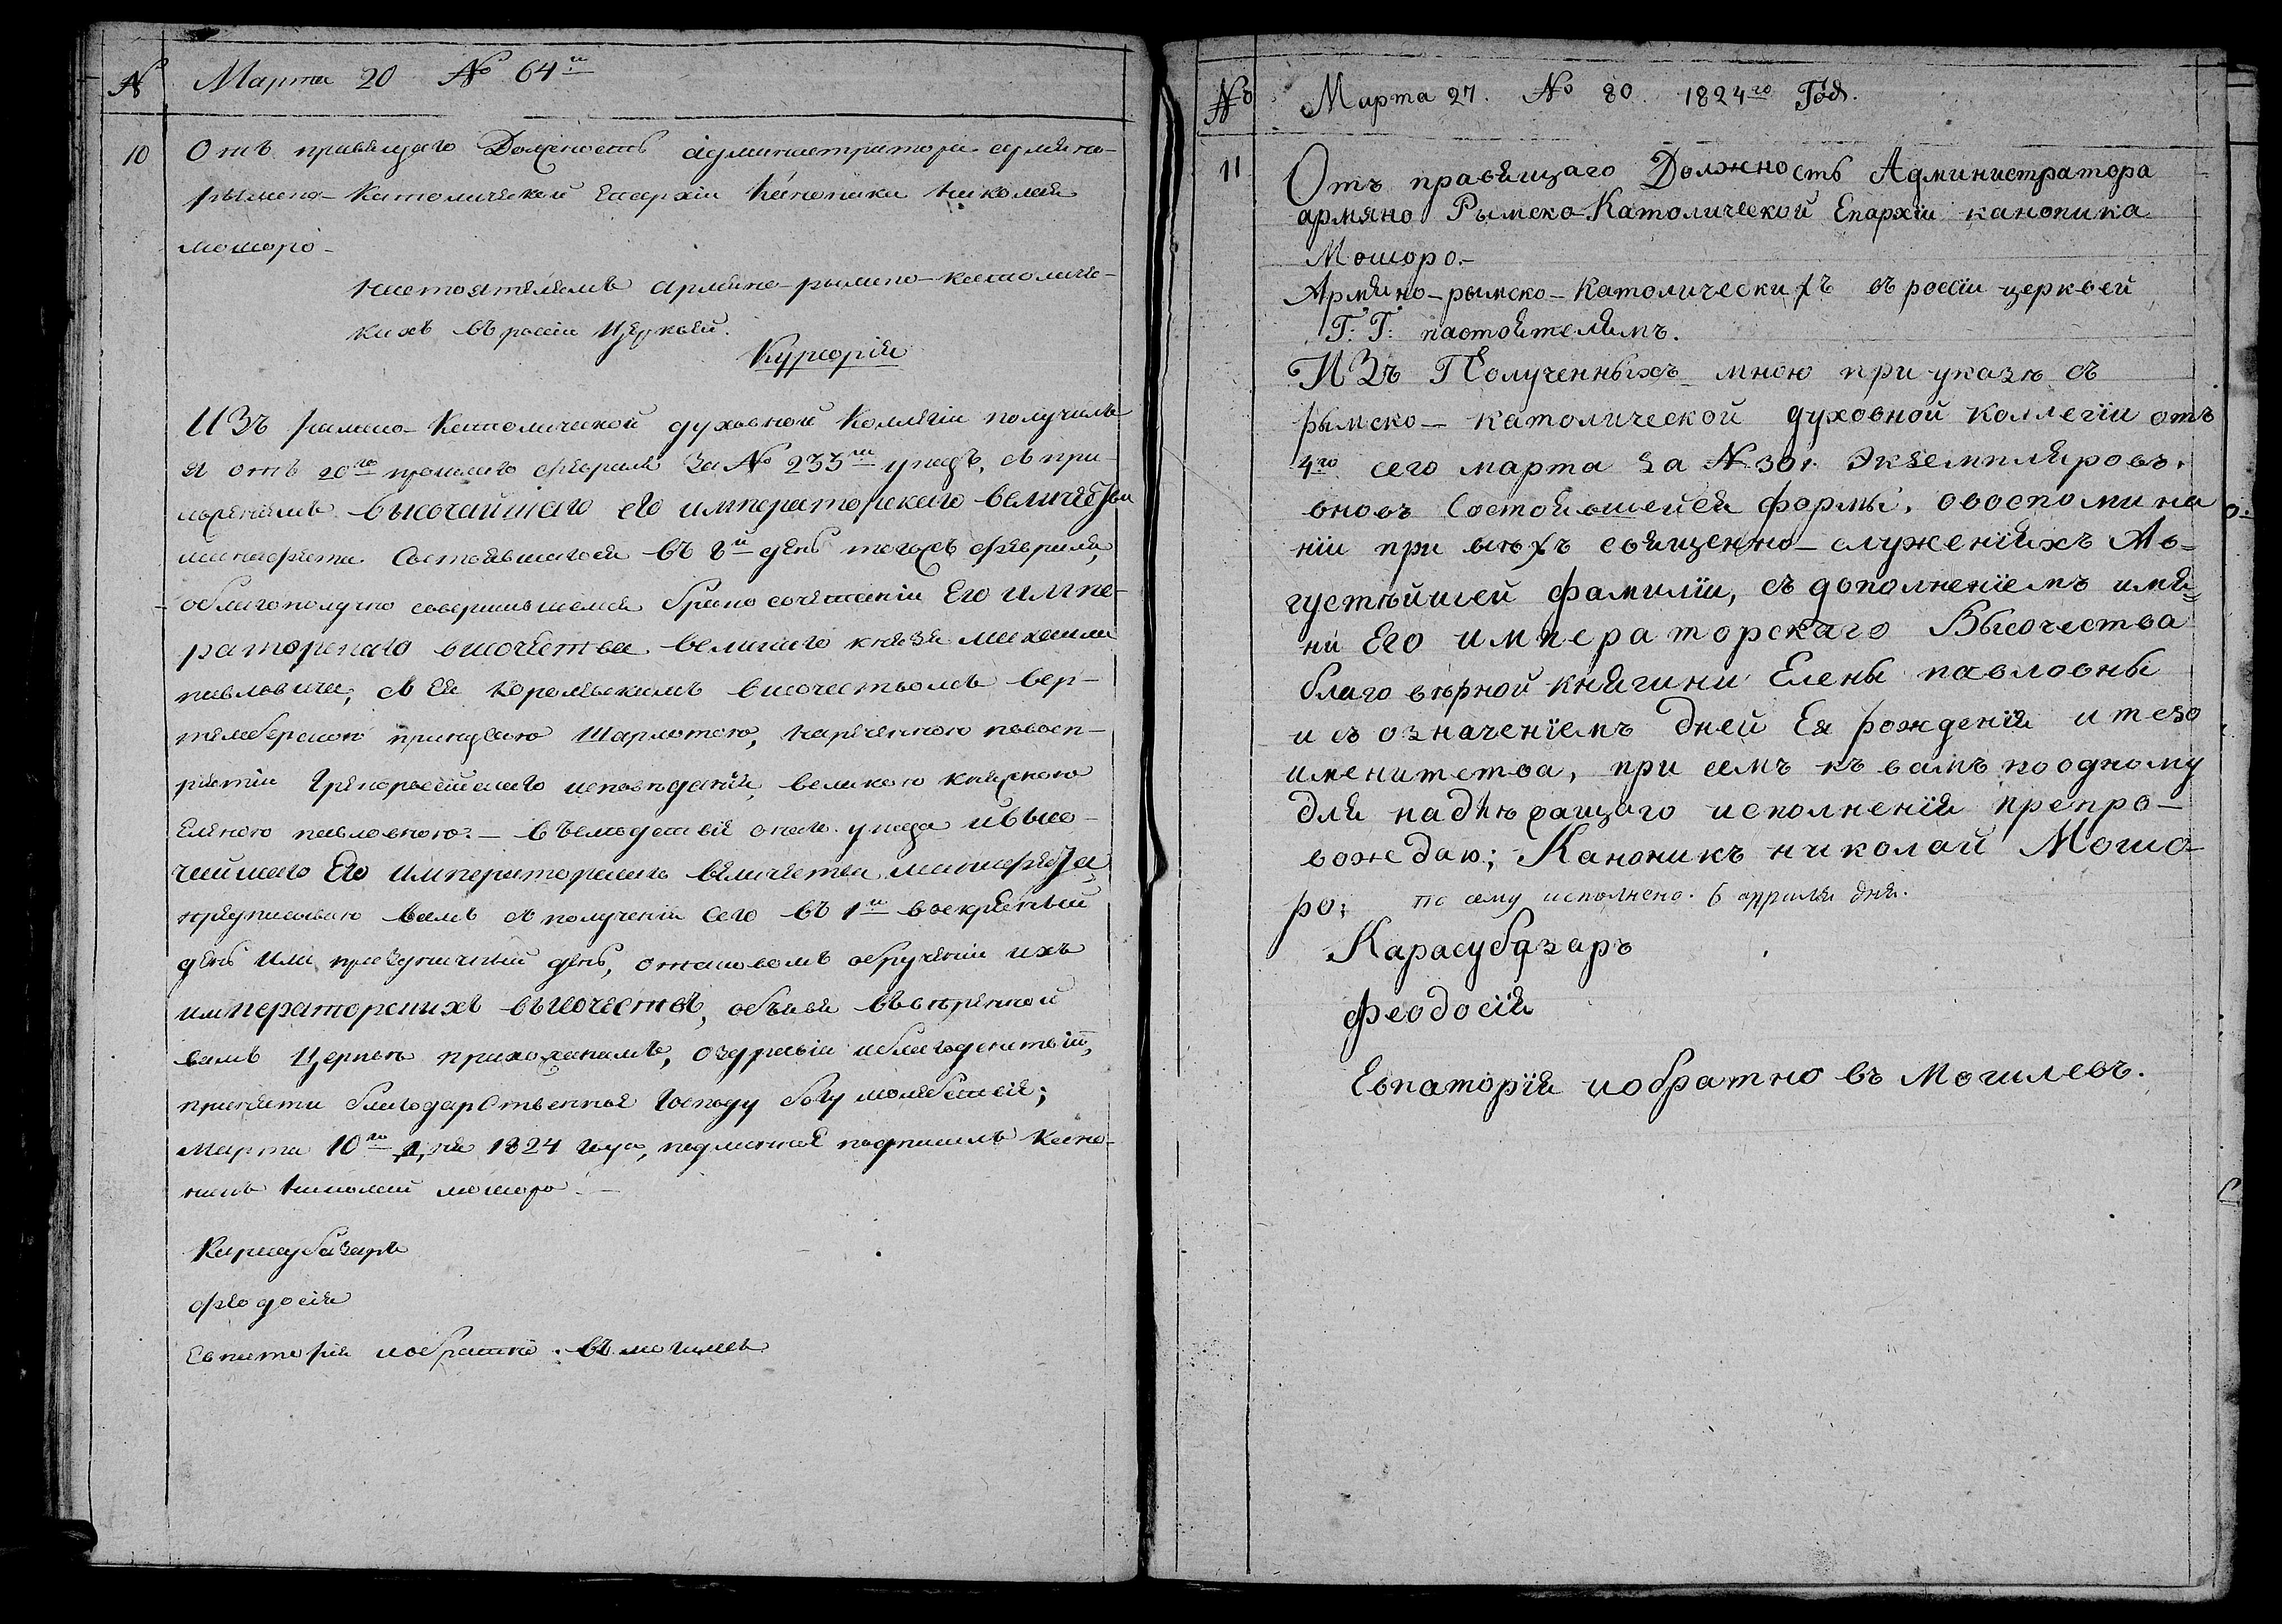 № Марта 20 № 64й
10 Отъ правящаго Должность администратора армяно-
рымско-Католической Епархіи Каноника николая
мошоро-
Настоятелямъ армяно-рымско-католичес-
кихъ въ россіи Церквей.
Курсорія
ИЗъ рымско-Католической духовной Коллегіи получилъ
я отъ 20го прошлаго февраля За № 233м указъ, съ при-
ложеніемъ высочайшаго его императорскаго величества
манифеста Состоявшагося въ 8й день тогожъ февраля,
облагополучно совершившемся брако сочетаніи Его Импе-
раторскаго высочества великаго князя михаила
павловича, съ Ея Королевскимъ высочествомъ вер-
темберскою принцесою Шарлотою, нареченною повосп-
рiятiи Грекороссійскаго исповѣданія, великою княжною
Еленою павловною.- въ слѣдствіе онаго указа ивысо-
чайшаго Его Императорскаго величества манифеста,
предписываю вамъ съ полученія сего въ 1й воскресный
день или праздничный день, отаковомъ обрученіи ихъ
императорскихъ высочествъ, объявя ввѣренной
вамъ Церквѣ прихожанамъ, оздравіи иблагоденствіи,
принести благодарственная Господу богу молебствія;
Марта 10го дня 1824 года, подлинное подписалъ Кано-
никъ николай мошоро.-
Карасубазаръ
феодосія
Евпаторія иобратно въ могилевъ
№ Марта 27. № 80. 1824го Года.
11 Отъ правящаго Должность Администратора
армяно Рымско-Католической Епархіи каноника
Мошоро.-
Армяно-рымско-Католическихъ въ россіи церквей
Г: Г: настоятелямъ.
ИЗъ Полученныхъ мною при указѣ съ
рымско-католической духовной коллегіи отъ
4го сего марта за №301. Экземпляровъ.
вновъ Состоявшейся формы, овоспомина
ніи при всѣхъ священно-служеніяхъ Ав-
густѣйшей фамиліи, съ дополненіемъ име-
ни Его императорскаго Высочества
благовѣрной княгини Елены павловны
и съ означеніемъ дней Ея рожденія и тезо
именитства, при семъ къ вамъ поодному
для надлѣжащаго исполненія препро-
вождаю; Каноникъ николай Мошо-
ро; по сему исполнено. 6 апрѣля дня.
Карасубазаръ
феодосія
Евпаторія иобратно въ Могилевъ.